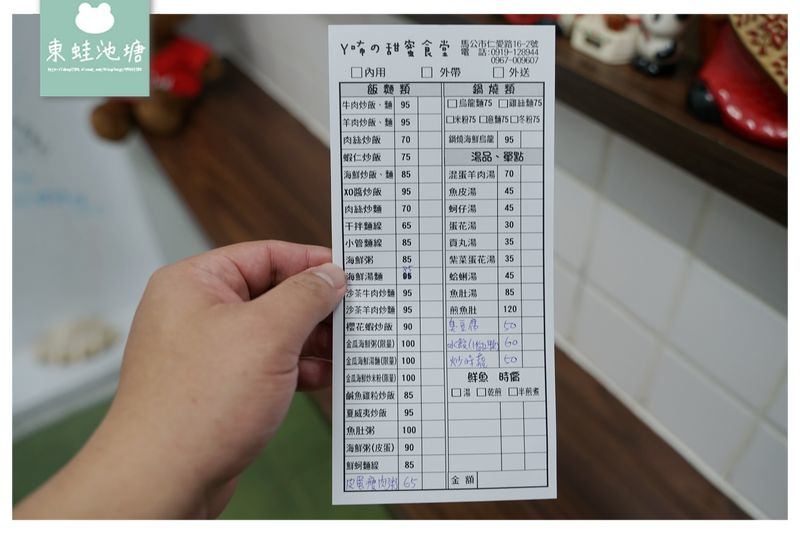 東蛙池塘
ㄚ咘の甜蜜食堂
馬公市仁愛路16-2號
電話:0919-128944
0967-009607
□內用 □外帶 □外送
飯麵類
牛肉炒飯、麵 95
羊肉炒飯、麵 95
肉絲炒飯 70
蝦仁炒飯 75
海鮮炒飯、麵 85
XO醬炒飯 95
肉絲炒麵 70
干拌麵線 65
小管麵線 85
海鮮粥 85
海鮮湯麵 85
沙茶牛肉炒麵 95
沙茶羊肉炒麵 95
櫻花蝦炒飯 90
金瓜海鮮粥(限量) 100
金瓜海鮮湯麵(限量) 100
金瓜海鮮炒米粉(限量) 100
鹹魚雞粒炒飯 85
夏威夷炒飯 95
魚肚粥 100
海鮮粥(皮蛋) 90
鮮蚵麵線 85
皮蛋瘦肉粥 65
鍋燒類
□烏龍麵75 □雞絲麵75
□米粉75 □意麵75 □冬粉75
鍋燒海鮮烏龍 95
湯品、單點
混蛋羊肉湯 70
魚皮湯 45
蚵仔湯 45
蛋花湯 30
貢丸湯 35
紫菜蛋花湯 35
蛤蜊湯 45
魚肚湯 85
煎魚肚 120
臭豆腐 50
水餃 60
炒時蔬 50
鮮魚 時價
□湯 □乾煎 □半煎煮
金額